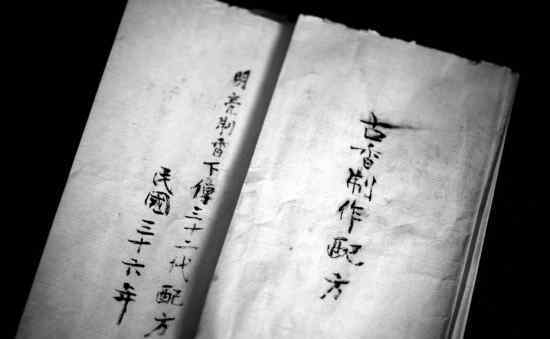 古香制作配方
明亮制香下傳三十二代配方
民國三十六年